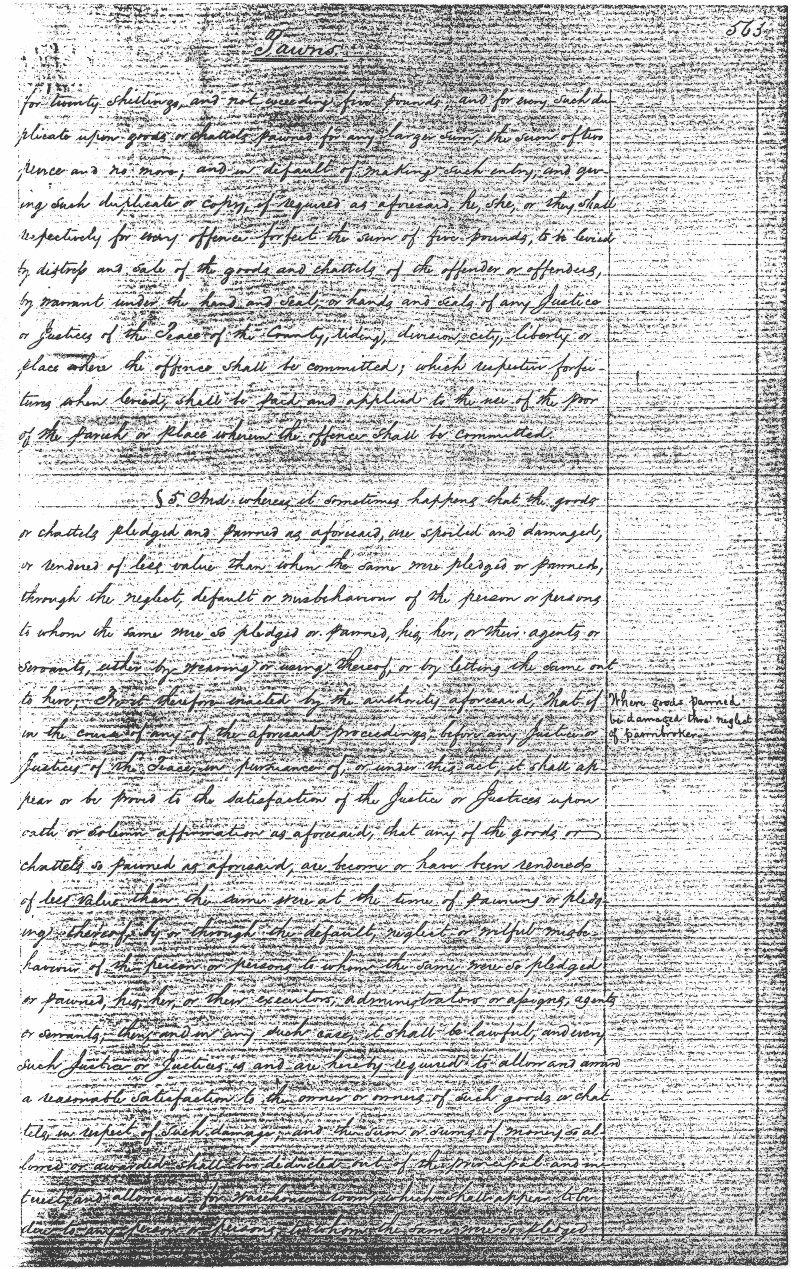 563
Pawns.
for twenty shillings, and not exceeding five pounds, and for every such du
plicate upon goods or chattels pawned for any larger sum, the sum of two
pence and no more; and in default of making such entry, and giv-
ing such duplicate or copy, if required as aforesaid, he, she, or they shall
respectively for every offence forfeit the sum of five pounds, to be levied
by distress and sale of the goods and chattels of the offender or offenders,
by warrant under the hand and seal, or hands and seals of any Justice
or Justices of the Peace of the County, riding, division, city, liberty or
place where the offence shall be committed; which respective forfei-
tures when levied, shall be paid and applied to the use of the poor
of the parish or place wherein the offence shall be committed.
§ 5 And whereas it sometimes happens that the goods
or chattels pledged and pawned as aforesaid, are spoiled and damaged,
or rendered of less value than when the same were pledged or pawned,
through the neglect, default or misbehaviour of the person or persons
to whom the same were so pledged or pawned, his, her, or their agents or
servants, either by wearing or using thereof, or by letting the same out
to hire; Be it therefore enacted by the authority aforesaid, that if
in the course of any of the aforesaid proceedings, before any Justice or
Justices of the Peace, in pursuance of, or under this act, it shall ap
pear or be proved to the satisfaction of the Justice or Justices upon
oath or solemn affirmation as aforesaid, that any of the goods or
chattels so pawned as aforesaid, are become or have been rendered
of less value than the same were at the time of pawning or pledg-
ing thereof, by or through the default, neglect or wilful misbe-
haviour of the person or persons to whom the same were so pledged
or pawned, his, her, or their executors, administrators or assigns, agents
or servants, then and in any such case, it shall be lawful, and every
such Justice or Justices is and are hereby required to allow and award
a reasonable satisfaction to the owner or owners of such goods or chat
tels, in respect of such damage, and the sum or sums of money so al-
lowed or awarded shall be deducted out of the principal and in
terest and allowance for warehouse room, which shall appear to be
due to any person or persons to whom the same were so pledged
Where goods pawned
be damaged thro' neglect
of pawnbroker.